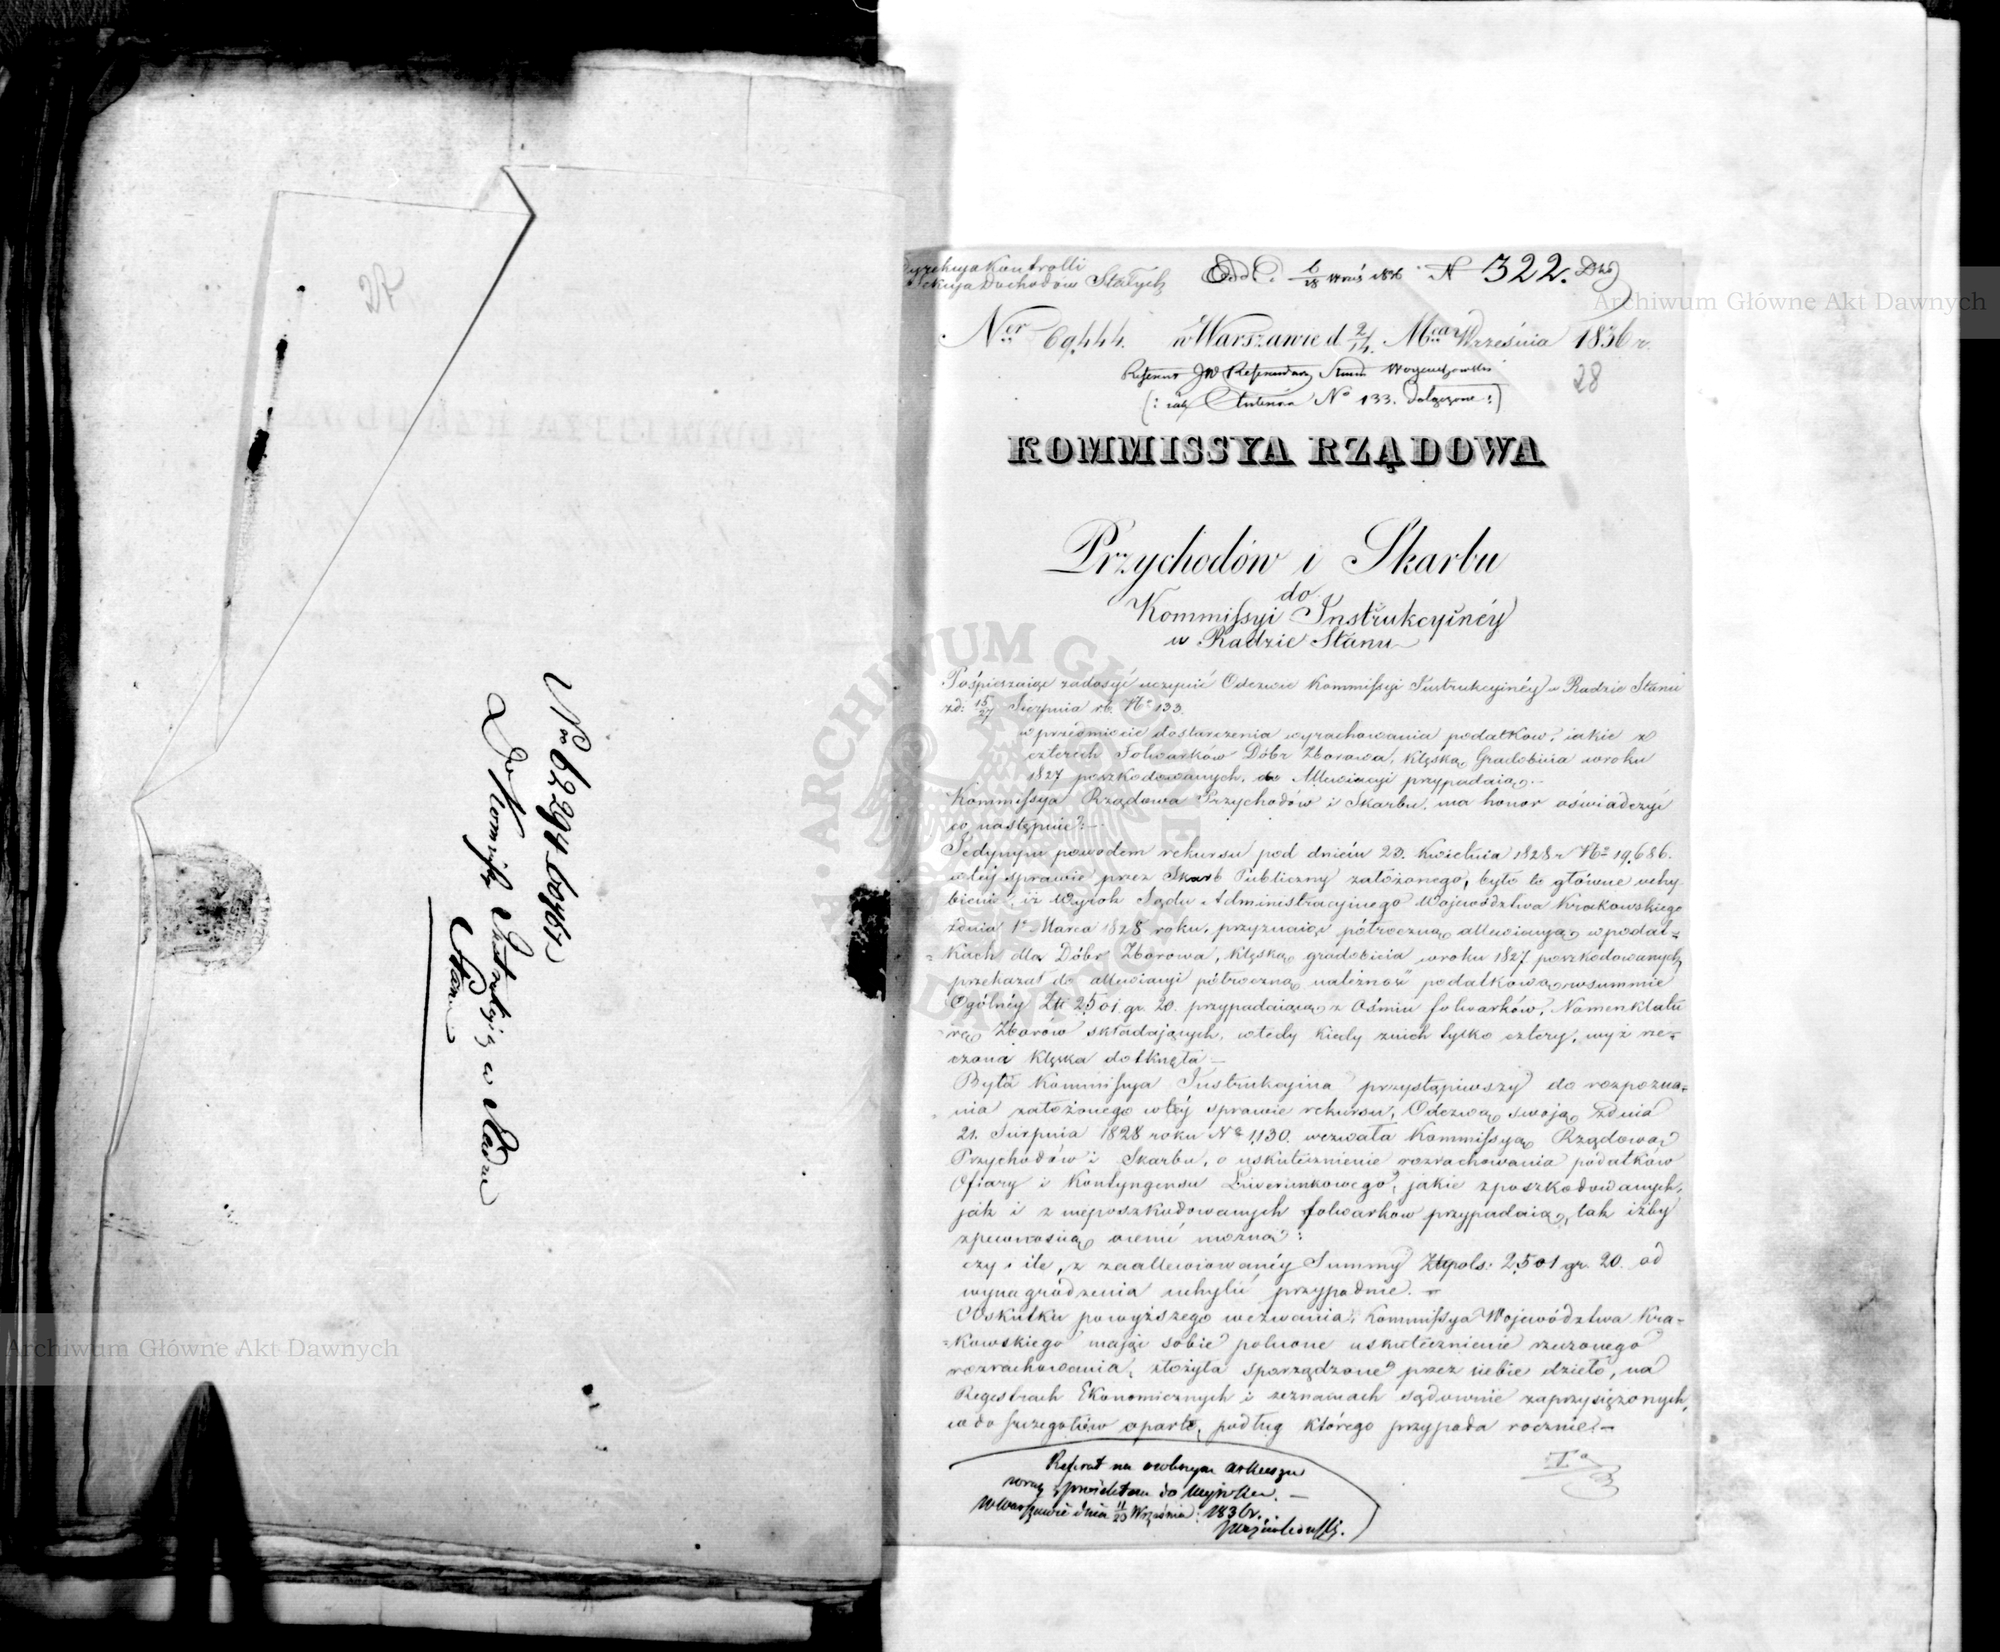 27
Nro 62294/69451
Do Kommissyi Instrukcyjnéj w Radzie
Stanu
Dyrekcya Kontrolli
Sekcya Dochodów Stałych
Odd. 6/18 Wrześ 1836 N 322. Dzs
Ner 69,444. w Warszawie d. 2/14. Mca Września 1836 r.
28
Referent JW Referendarz Stanu Woyciechowski
(: zały Antenna No 133. dołączone :)
KOMMISSYA RZĄDOWA
Przychodów i Skarbu
do
Kommissyi Instrukcyinéy
w Radzie Stanu
Pośpieszaiąc zadosyć uczynić Odezwie Kommissyi Instrukcyinéy w Radzie Stanu
z d: 15/27 Sierpnia rb. No 133.
w przedmiocie dostarczenia wyrachowania podatków, iakie z
czterech Folwarków Dóbr Zborowa, klęską Gradobicia w roku
1827 poszkodowanych, do Allewiacyi przypadaią.—
Kommissya Rządowa Przychodów i Skarbu, ma honor oświadczyć
co następuie:—
Jedynym powodem rekursu pod dniem 23. Kwietnia 1828 r No 19,686.
w téy sprawie przez Skarb Publiczny założonego, było to główne uchy-
bienie, iż Wyrok Sądu Administracyjnego Województwa Krakowskiego
z dnia 1o Marca 1828 roku, przyznaiąc półroczną allewiacyą w podat-
kach dla Dóbr Zborowa, klęską gradobicia w roku 1827 poszkodowanych,
przekazał do allewiacyi półroczną należność podatkową w summie
Ogólnéy Złt 2501 gr. 20. przypadaiącą z Ośmiu folwarków, Nomenklatu
rę Zborów składających, wtedy kiedy z nich tylko cztery, wyż rze-
czona klęska dotknęła —
Była Kommissya Instrukcyina przystąpiwszy do rozpozna-
nia założonego w téy sprawie rekursu, Odezwą swoją z dnia
21. Sierpnia 1828 roku No 1,130. wezwała Kommissyą Rządową
Przychodów i Skarbu, o uskutecznienie rozrachowania podatków
Ofiary i Kontyngensu Liwerunkowego, jakie z poszkodowanych,
jak i z nieposzkodowanych folwarków przypadaią, tak iżby
z pewnością ocenić można:
czy i ile, z zaallewiowanéy Summy Złtpols: 2501 gr. 20. od
wynagrodzenia uchylić przypadnie. —
W skutku powyższego wezwania, Kommissya Województwa Kra-
kowskiego mając sobie polecone uskutecznienie rzeczonego
rozrachowania, złożyła sporządzone przez siebie dzieło, na
Regestrach Ekonomicznych i zeznaniach sądownie zaprzysiężonych,
co do szczegółów oparte, podług którego przypada rocznie:—
Io
Referat na osobnym arkuszu
wraz z projektem do Wyroku. —
w Warszawie dnia 11/23 Września 1836 r.
Woyciechowski.